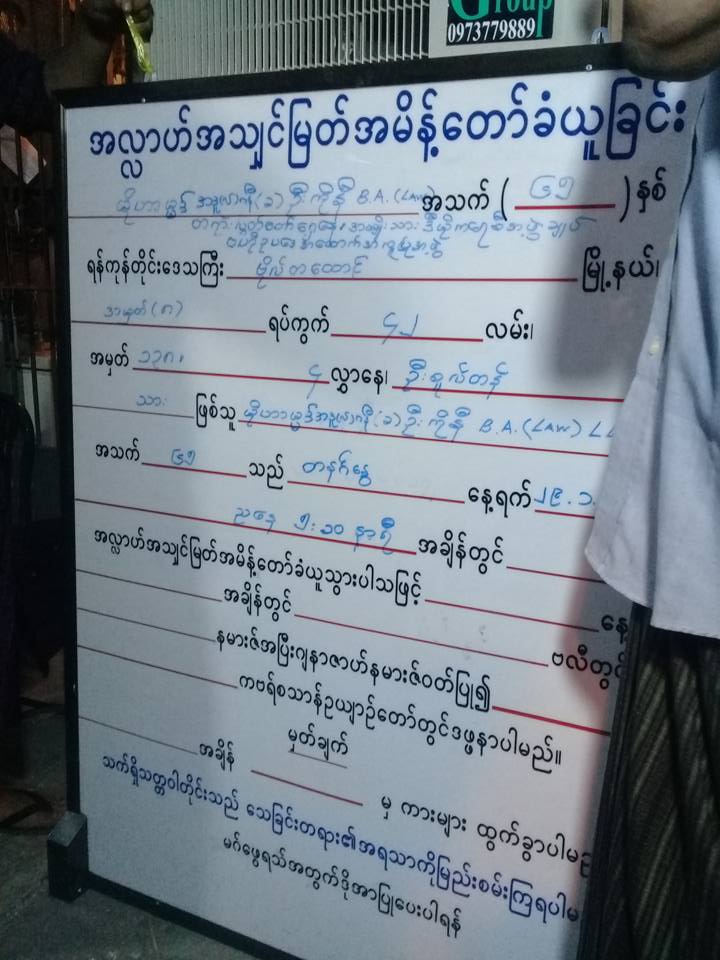 Group
0973779889
အလ္လာဟ်အသျှင်မြတ်အမိန့်တော်ခံယူခြင်း
မိုဟာမ္မဒ် အနူယာဂနီ (ခ) ဦးကိုနီ B.A.(LAW) အသက် ( ၆၅ ) နှစ်
တရားလွှတ်တော်ရှေ့နေ၊ အမျိုးသား ဒီမိုကရေစီအဖွဲ့ချုပ်
ဗဟိုဥပဒေအထောက်အကူပြုအဖွဲ့
ရန်ကုန်တိုင်းဒေသကြီး ဗိုလ်တထောင် မြို့နယ်၊
အမှတ်(၈) ရပ်ကွက် ၄၂ လမ်း၊
အမှတ် ၁၃၈၊ ၄ လွှာနေ၊ ဦးစူလ်တန်
သား ဖြစ်သူ မိုဟာမ္မဒ်အနူယာဂနီ(ခ)ဦးကိုနီ B.A.(LAW) LL
အသက် ၆၅ သည် တနင်္ဂနွေ နေ့ရက် ၂၉.၁.
ညနေ ၅:၁၀ နာရီ အချိန်တွင်
အလ္လာဟ်အသျှင်မြတ်အမိန့်တော်ခံယူသွားပါသဖြင့် နေ့
အချိန်တွင် ဗလီတွင်
နမားဇ်အပြီးဂျနာဇာဟ်နမားဇ်ဝတ်ပြု၍
ကဗရ်စသာန်ဥယျာဉ်တော်တွင်ဒဖ္ဖနာပါမည်။
မှတ်ချက်
အချိန် မှ ကားများ ထွက်ခွာပါမည်
သက်ရှိသတ္တဝါတိုင်းသည် သေခြင်းတရား၏အရသာကိုမြည်းစမ်းကြရပါမ
မဂ်ဖွေရသ်အတွက်ဒိုအာပြုပေးပါရန်